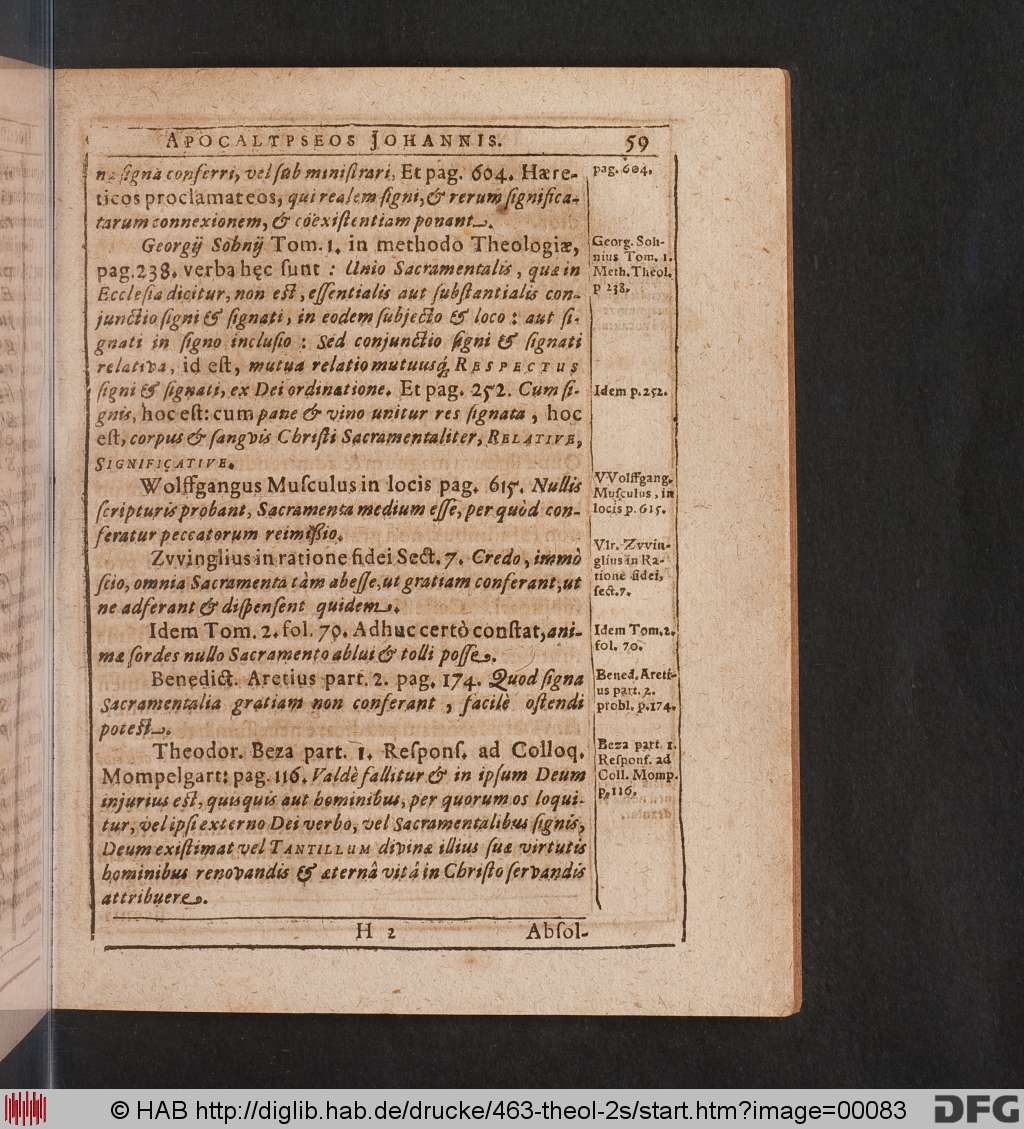 APOCALYPSEOS JOHANNIS. 59
na ſigna conferri, vel ſub miniſtrari, Et pag. 604. Hære-
ticos proclamat eos, qui realem ſigni, & rerum ſignifica-
tarum connexionem, & coëxiſtentiam ponant.
pag. 604.
Georgij Sohnij Tom. 1. in methodo Theologiæ,
pag. 238. verba hęc ſunt : Unio Sacramentalis, quæ in
Eccleſia dicitur, non eſt, eſſentialis aut ſubſtantialis con-
junctio ſigni & ſignati, in eodem ſubjecto & loco : aut ſi-
gnati in ſigno incluſio : Sed conjunctio ſigni & ſignati
relativa, id eſt, mutua relatio mutuusq́; RESPECTUS
ſigni & ſignati, ex Dei ordinatione. Et pag. 252. Cum ſi-
gnis, hoc eſt: cum pane & vino unitur res ſignata, hoc
eſt, corpus & ſangvis Chriſti Sacramentaliter, RELATIVE,
SIGNIFICATIVE.
Georg. Soh-
nius Tom. 1.
Meth. Theol.
p 238.
Idem p. 252.
Wolffgangus Muſculus in locis pag. 615. Nullis
ſcripturis probant, Sacramenta medium eſſe, per quòd con-
feratur peccatorum reimiſſio.
VVolffgang.
Muſculus, in
locis p. 615.
Zvvinglius in ratione fidei Sect. 7. Credo, immò
ſcio, omnia Sacramenta tàm abeſſe, ut gratiam conferant, ut
ne adferant & diſpenſent quidem.
Vlr. Zvvin-
glius in Ra-
tione fidei,
ſect. 7.
Idem Tom. 2. fol. 70. Adhuc certò conſtat, ani-
mæ ſordes nullo Sacramento ablui & tolli poſſe.
Idem Tom. 2.
fol. 70.
Benedict. Aretius part. 2. pag. 174. Quod ſigna
Sacramentalia gratiam non conferant, facilè oſtendi
poteſt.
Bened. Areti-
us part. 2.
probl. p. 174.
Theodor. Beza part. 1. Reſponſ. ad Colloq.
Mompelgart: pag. 116. Valdè fallitur & in ipſum Deum
injurius eſt, quisquis aut hominibus, per quorum os loqui-
tur, vel ipſi externo Dei verbo, vel Sacramentalibus ſignis,
Deum exiſtimat vel TANTILLUM divinæ illius ſuæ virtutis
hominibus renovandis & æternâ vitâ in Chriſto ſervandis
attribuere.
Beza part 1.
Reſponſ. ad
Coll. Momp.
p. 116.
H 2 Abſol-
© HAB http://diglib.hab.de/drucke/463-theol-2s/start.htm?image=00083 DFG